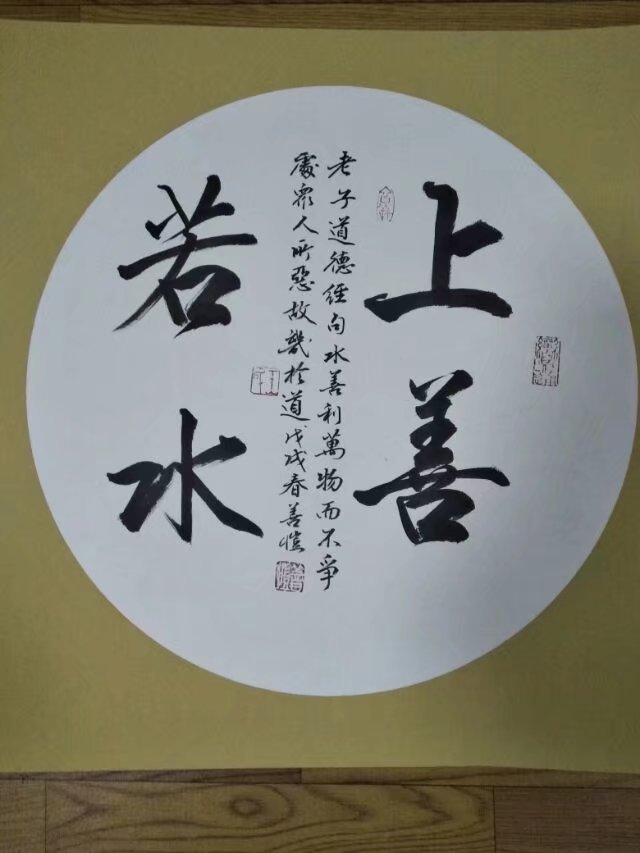 上善
老子道德經句水善利萬物而不爭
處眾人所惡故幾於道戊戌春善愷
若水